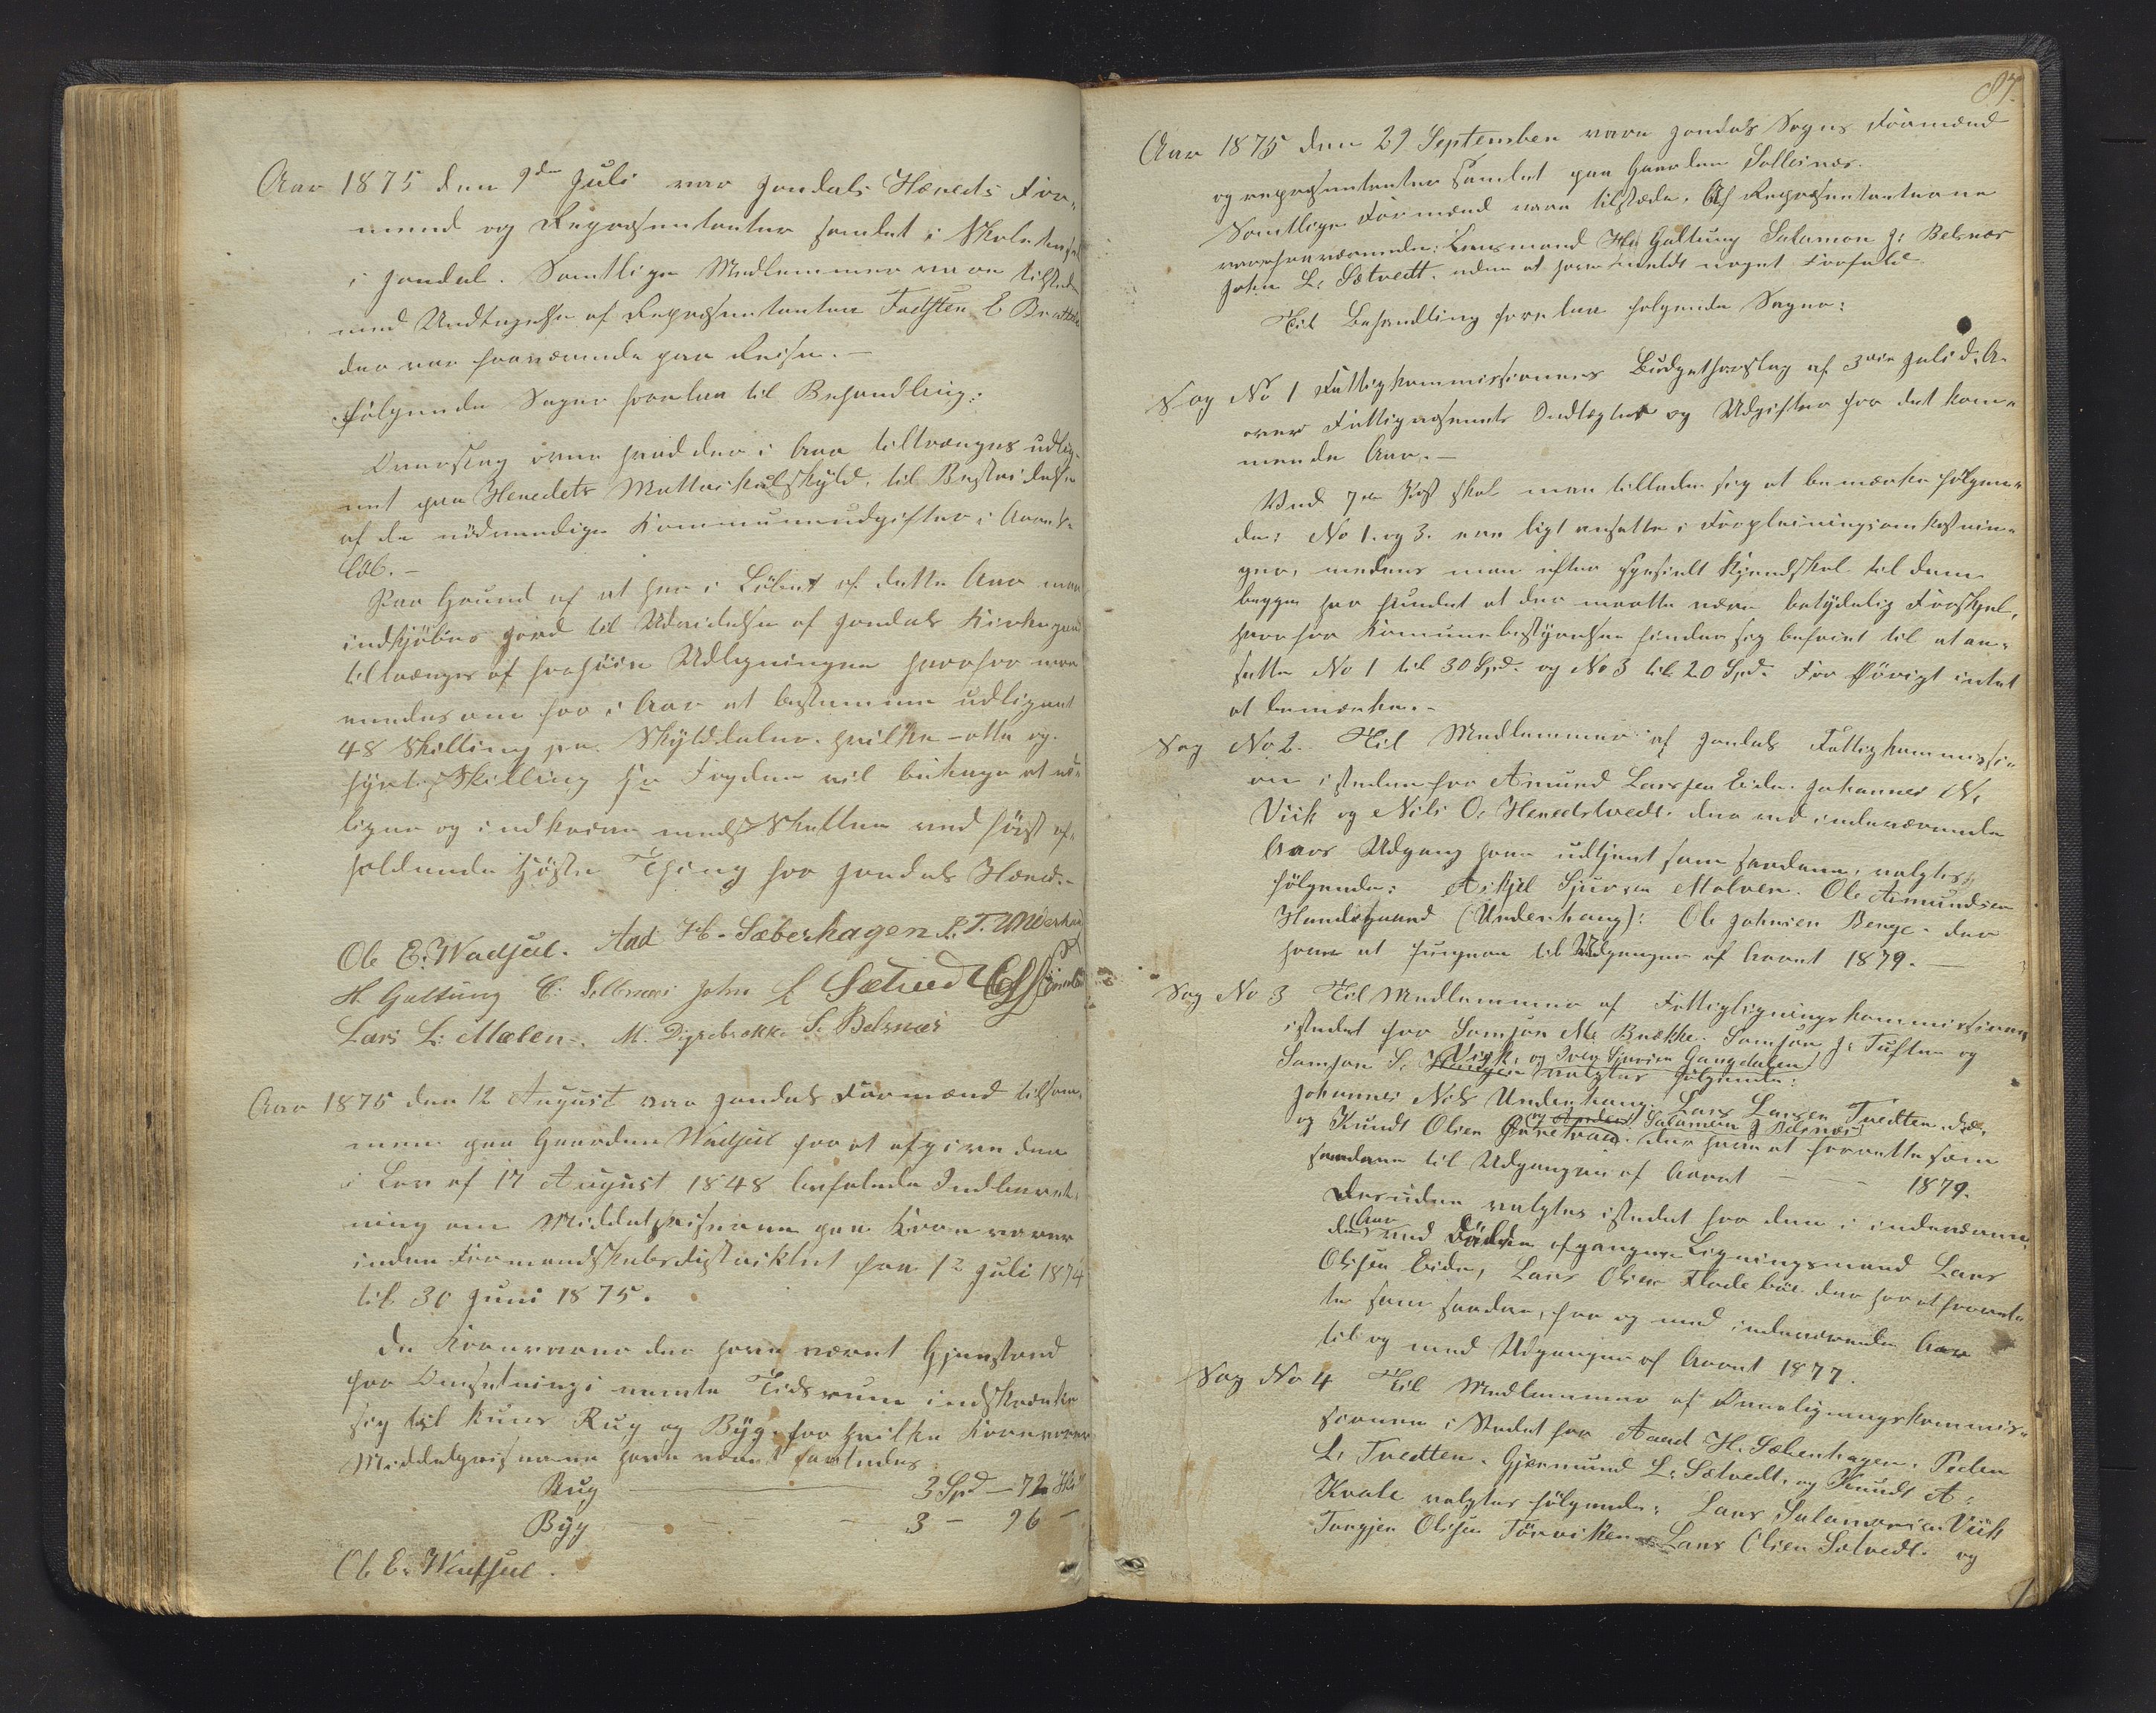 Aar 1875 den 9de Juli var Jondals Hereds For-
mænd og Repræsentanter samlet i Skolehuset
i Jondal. Samtlige Medlemmer vare tilstede
med Undtagelse af Repræsentanten Torsten E
der var fraværende paa Reise. –
Følgende Sager foretoges til Behandling:
Overslag over hvad der i Aar tiltrænges udlig-
net paa Heredets Mattrikulskyld, til Bestridelse
af de nödvendige Kommuneudgifter i Aarets
Löb. –
Paa Grund af at her i Löbet af dette Aar maa
indkjöbes Jord til Udvidelse af Jondals Kirkegaard
tiltrænges at forhöie Udligningen hvorfor man
enedes om for i Aar at bestemme udlignet
48 Skilling pr. Skylddaler. hvilke – otte og
fyrti Skilling Hr Fogden vil behage at ud-
ligne og indkræve med Skatten ved först af-
holdende Höste Thing for Jondals Hered. –
Ole E. Wadsel. Aad H. Sæberhagen P. T. Underhaug
H. Galtung E. Solbsnæs John L Sætved
Lars L: Mælen. M. Digrebrekke S. Belsnæs
Aar 1875 den 12 August var Jondals Formænd tilsam-
men paa Gaarden Wadsel for at afgive den
i Lov af 17 August 1848 befalede Indberet-
ning om Middelpriserne paa Kornvarer
inden Formandskabsdistriktet fra 12 Juli 1874
til 30 Juni 1875.
De Kornvarer der have været Gjenstand
for Omsetning i nævnte Tidsrum indskrænker
sig til kuns Rug og Byg. for hvilke Kornvarer
Middelpriserne have været saaledes
Rug 3 Spd – 72 Sk
Byg 3 – 96 –
Ole E. Wadsel.
87.
Aar 1875 den 29 September vare Jondals Sogns Formænd
og repræsentanter samlet paa Gaarden Solbsnæs.
Samtlige Formænd vare tilstede. Af Repræsentanterne
vare fraværende: Lensmand H: Galtung Salamon J: Belsnæs
John L. Sætvedt. uden at have meldt noget Forfald
Til Behandling foretoges følgende Sager:
Sag No 1 Fattigkommissionens Budgetforslag af 3die Juli d. A.
over Fattigvæsenets Indtægter og Udgifter for det kom-
mende Aar. –
Ved Post skal man tillade sig at bemærke fölgen-
de: No 1. og 3. ere ligt ansatte i Forpleiningsomkostnin-
ger, medens man efter specielt Kjendskab til dem
begge har fundet at der maatte være betydelig Forskjel,
hvorfor Komunebestyrelsen finder sig beföiet til at an-
sætte No 1 til 30 Spd. og No 3 til 20 Spd. For Övrigt intet
at bemærke. –
Sag No 2. Til Medlemmer af Jondals Fattigkommissi-
on istedenfor Amund Larssen Eide. Johannes N.
Viik og Nils O. Heredstvedt. der ved indeværende
Aars Udgang have udtjent som saadane, valgtes
fölgende: Askjel Sjursen Molven. Ole Amundsen
(Underhaug): Ole Johnsen Berge. der
have at fungere til Udgangen af Aaret 1879. –
Sag No 3 Til Medlemmer af Fattigligningskommissionen
istedet for Samson M. Brække. Samson J: Tuften og
Samson S. Viik. og Iver Sjursen Gangdalen
valgtes fölgende:
Johannes Nils Underhaug. Lars Larsen Tvedten.
og Salamon J Belsnæs
og Knudt Olsen der have at forrette som
saadane til Udgangen af Aaret – – – 1879.
Desuden valgtes istedet for den i indeværen-
de Aar ved Döden afgangne Ligningsmand Lars
Olsen Eide, Lars Olsen Fladeböe der har at forret-
te som saadan, for og med indeværende Aar
til og med Udgangen af Aaret 1877.
Sag No 4 Til Medlemmer af Overligningskommis-
sionen i Stedet for Aaad H. Sæberhagen. Peder
L: Tvedten. Gjermund L: Sætvedt. og Knudt A:
Kvale valgtes fölgende: Lars Salamonsen Viik
Torgjer Olsen Törviken Lars Olsen Sætvedt. og